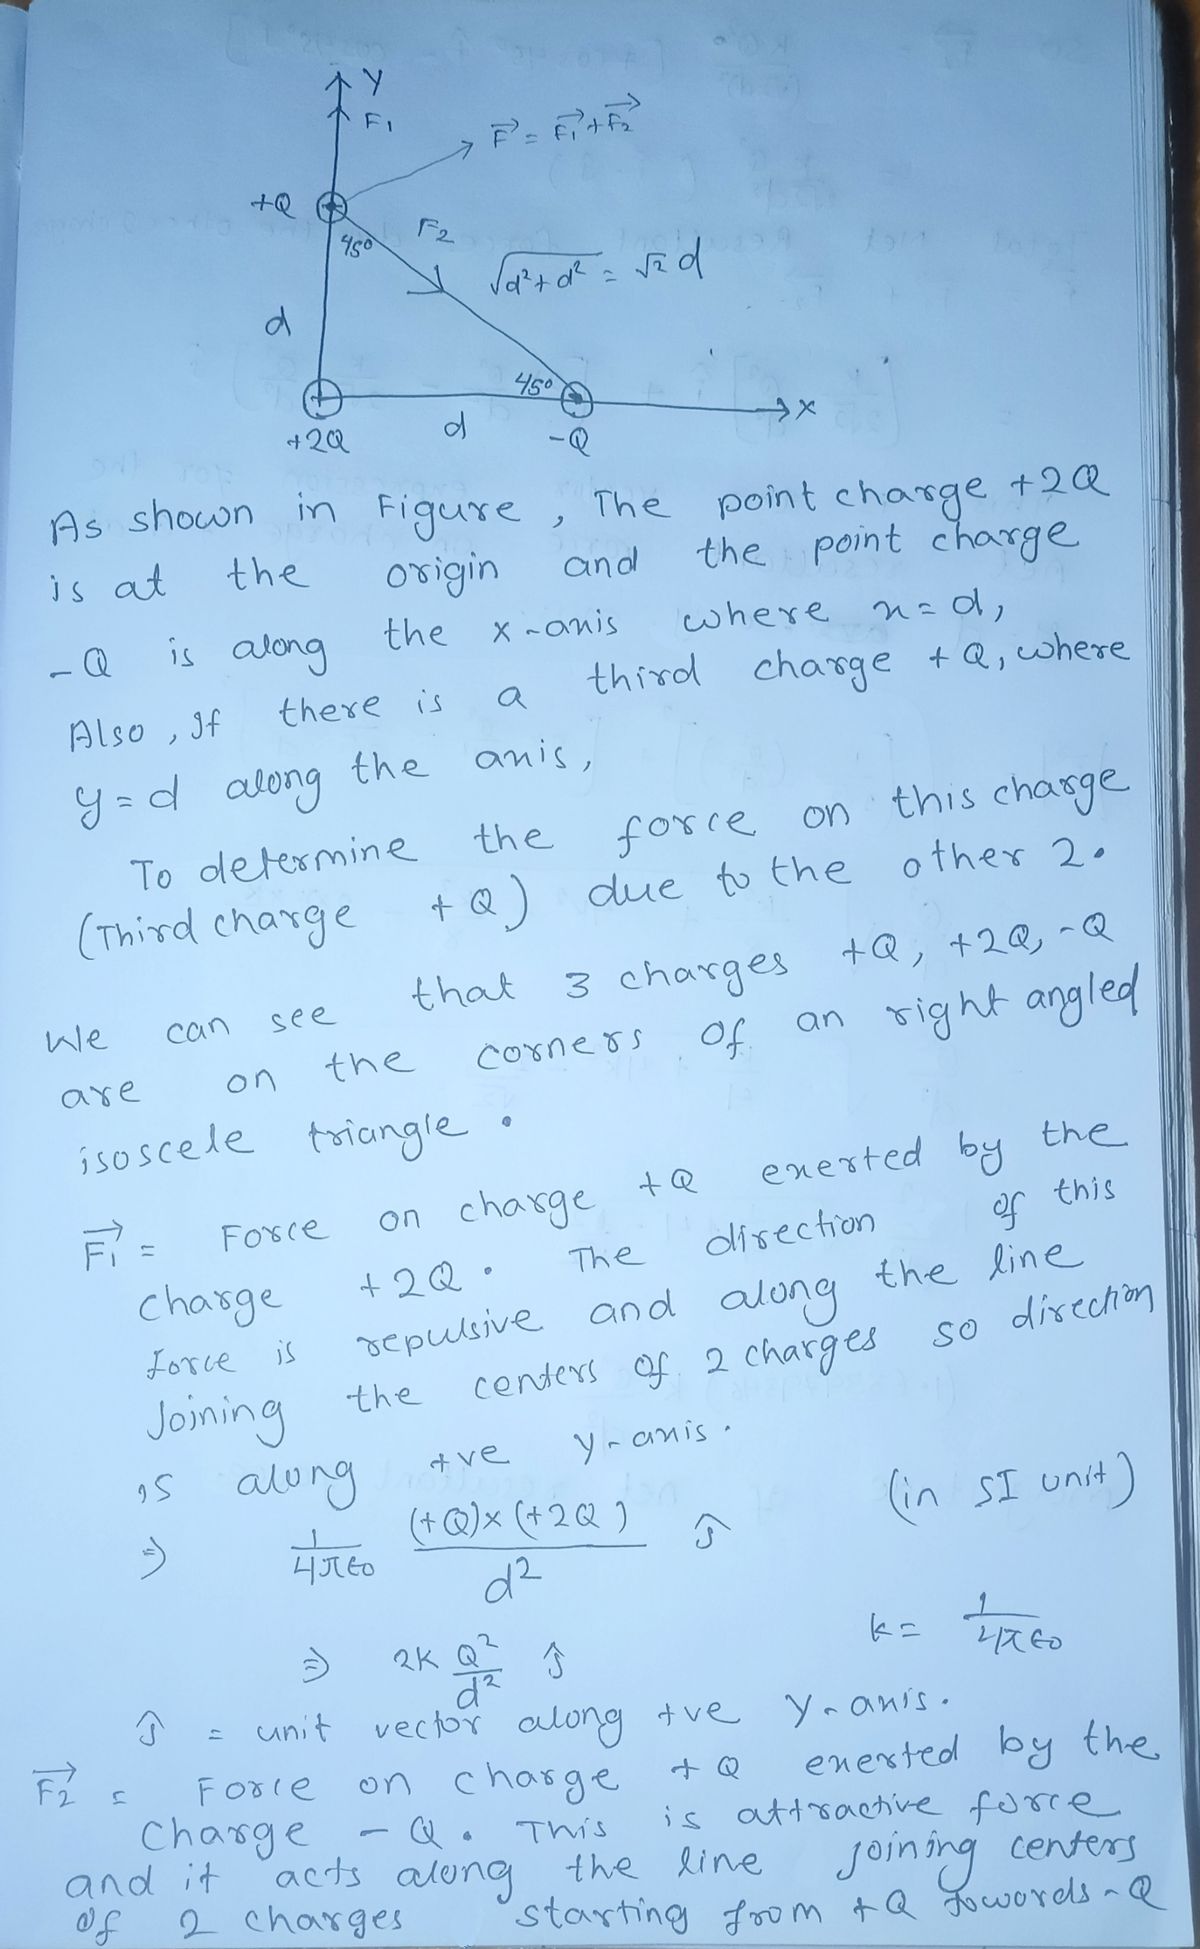 Y
F1
F⃗ = F1⃗ + F2⃗
+Q
45°
F2
√d²+d² = √2 d
d
45°
x
+2Q
d
-Q
As shown in Figure, The point charge +2Q
is at the origin and the point charge
-Q is along the x-axis where x=d,
Also, If there is a third charge +Q, where
y=d along the axis,
To determine the force on this charge
(Third charge +Q) due to the other 2.
We can see that 3 charges +Q, +2Q, -Q
are on the corners of an right angled
isoscele triangle.
F1⃗ = Force on charge +Q exerted by the
charge +2Q. The direction of this
force is repulsive and along the line
Joining the centers of 2 charges so direction
is along +ve y-axis.
⇒ 1/4πε0 (+Q)×(+2Q)/d² ĵ (in SI unit)
⇒ 2K Q²/d² ĵ k = 1/4πε0
ĵ = unit vector along +ve Y-axis.
F2⃗ = Force on charge +Q exerted by the
Charge -Q. This is attractive force
and it acts along the line joining centers
of 2 charges starting from +Q towords -Q